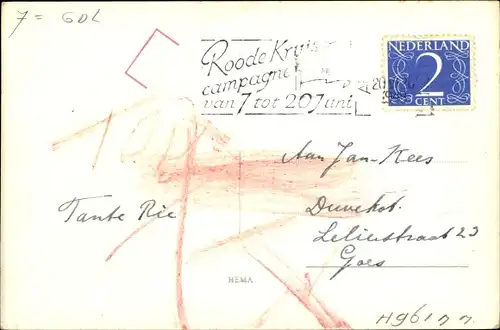 7 = GDL
Roode Kruis
campagne
van 7 tot 20 Juni
NEDERLAND
2
CENT
Aan Jan-Kees
Tante Rie
Duvekot.
Leliestraat 23
Goes
HEMA
H96177